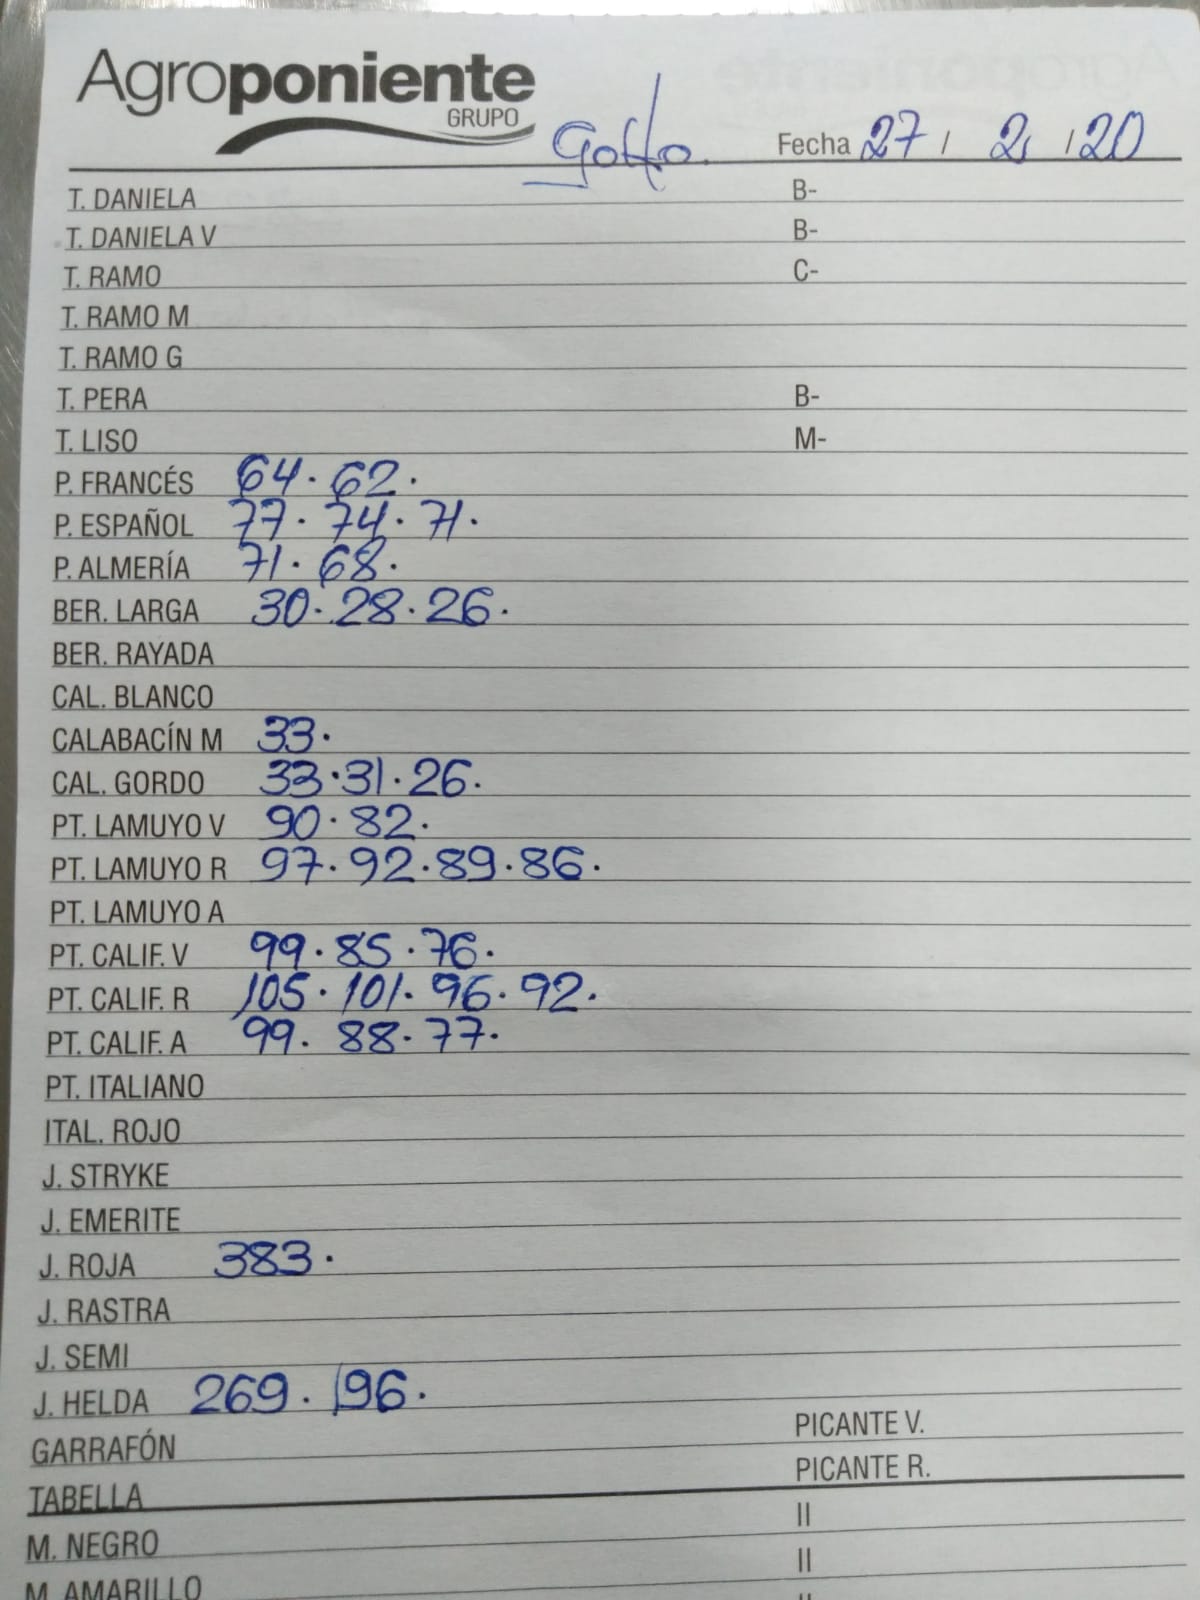 Agroponiente
GRUPO
Golfo. Fecha 27 / 2 / 20
T. DANIELA B-
T. DANIELA V B-
T. RAMO C-
T. RAMO M
T. RAMO G
T. PERA B-
T. LISO M-
P. FRANCÉS 64. 62.
P. ESPAÑOL 77. 74. 71.
P. ALMERÍA 71. 68.
BER. LARGA 30. 28. 26.
BER. RAYADA
CAL. BLANCO
CALABACÍN M 33.
CAL. GORDO 33. 31. 26.
PT. LAMUYO V 90. 82.
PT. LAMUYO R 97. 92. 89. 86.
PT. LAMUYO A
PT. CALIF. V 99. 85. 76.
PT. CALIF. R 105. 101. 96. 92.
PT. CALIF. A 99. 88. 77.
PT. ITALIANO
ITAL. ROJO
J. STRYKE
J. EMERITE
J. ROJA 383.
J. RASTRA
J. SEMI
J. HELDA 269. 196.
GARRAFÓN PICANTE V.
TABELLA PICANTE R.
M. NEGRO II
M. AMARILLO II